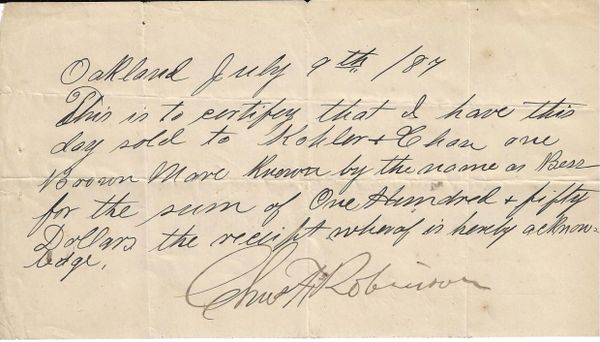 Oakland July 9th /87
This is to certifey that I have this
day sold to Kohler + Chase one
Brown Mare Known by the name as Bess
for the sum of One Hundred + fifty
Dollars the receipt wherof is hereby acknow-
ledge.
Chas H Robinson